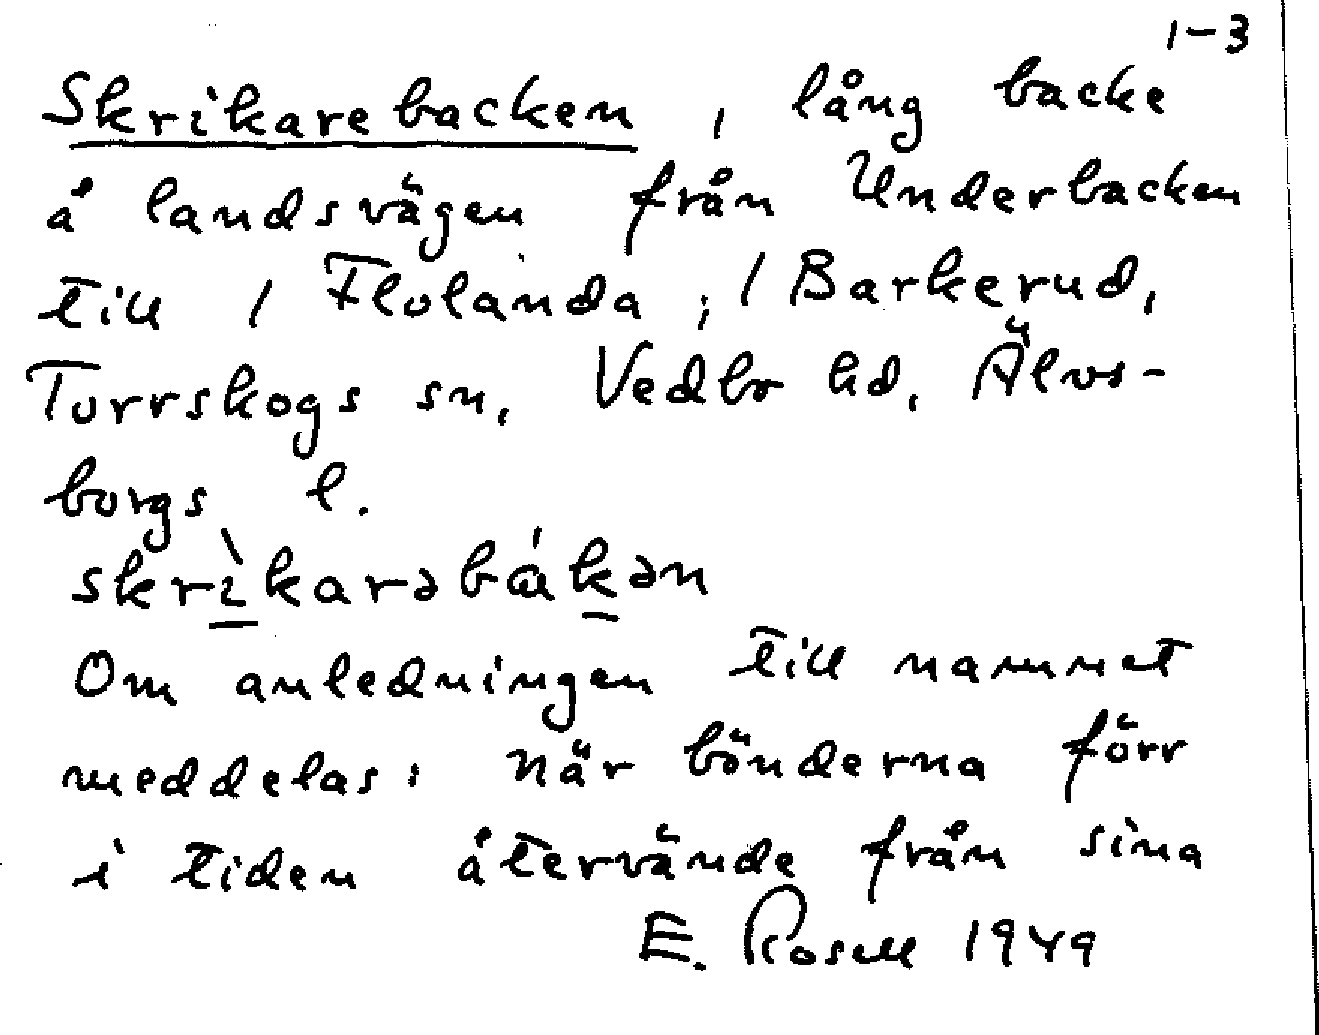 1-3
Skrikarebacken, lång backe
å landsvägen från Underbacken
till / Flolanda, / Barkerud,
Torrskogs sn, Vedbo hd, Älvs-
borgs l.
skrìkarəbákən
Om anledningen till namnet
meddelas: När bönderna förr
i tiden återvände från sina
E. Rosell 1949